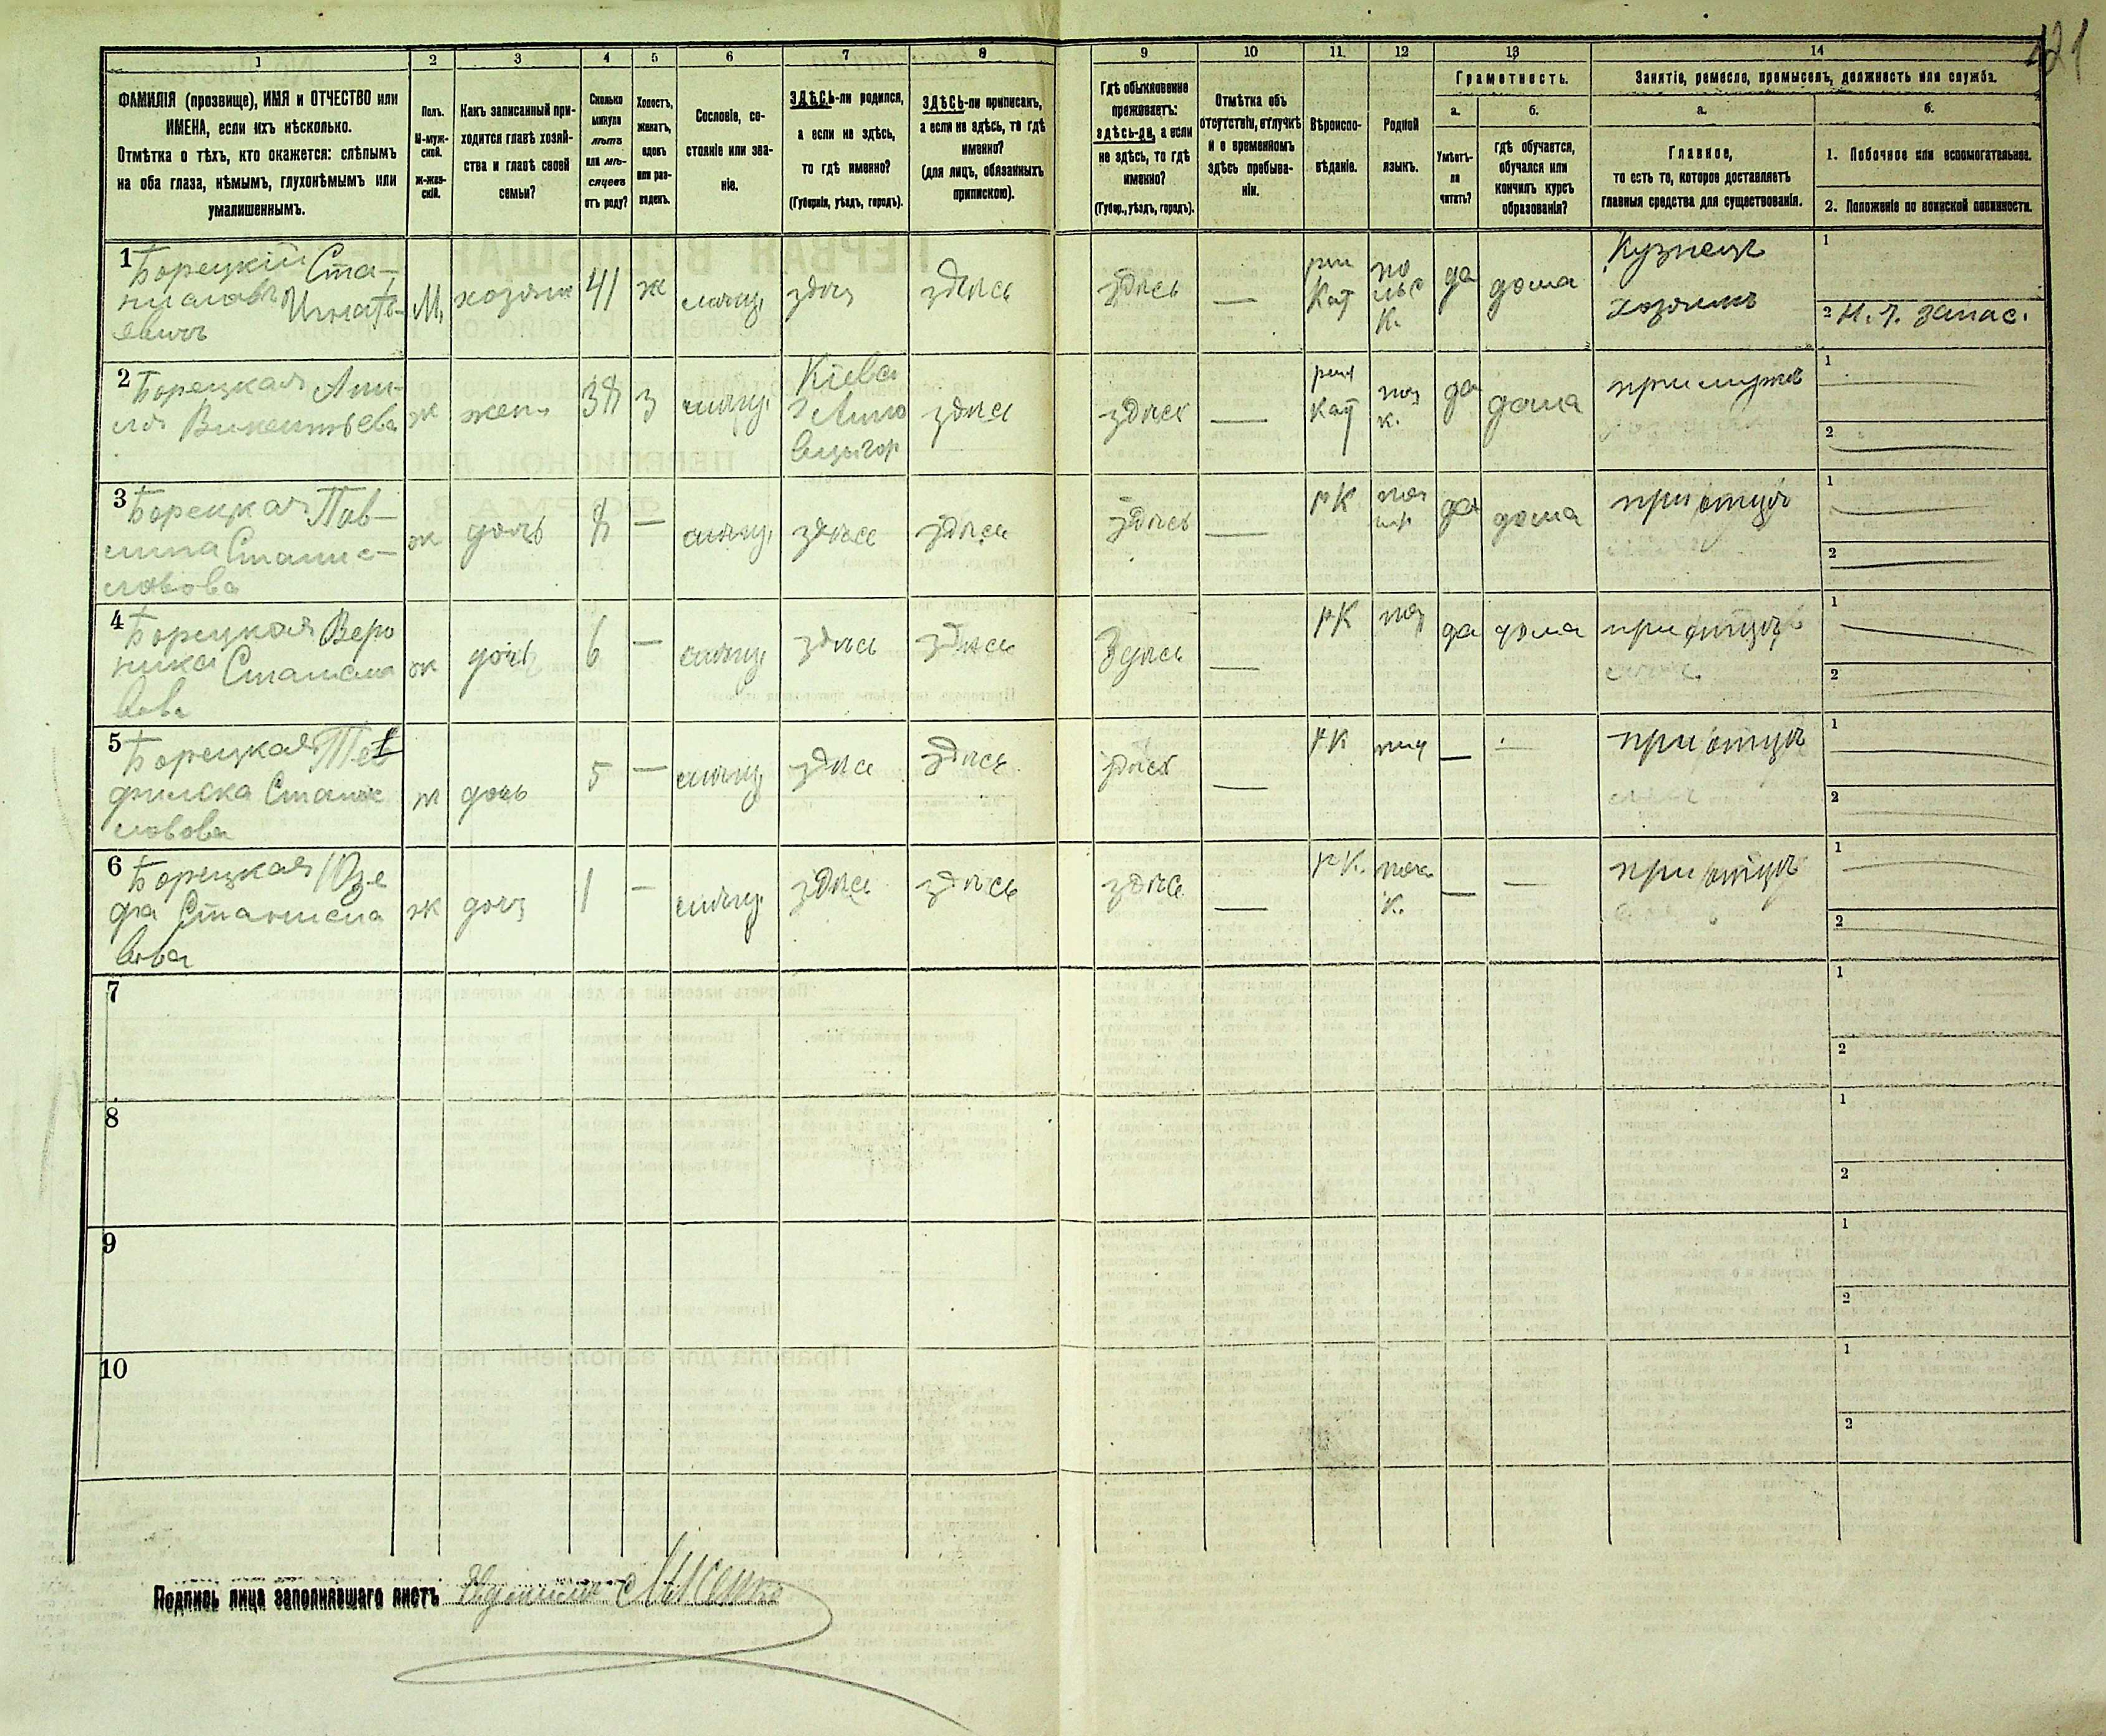 121
1 2 3 4 5 6 7 8 9 10 11 12 13 14
ФАМИЛІЯ (прозвище), ИМЯ и ОТЧЕСТВО или
ИМЕНА, если ихъ нѣсколько.
Отмѣтка о тѣхъ, кто окажется: слѣпымъ
на оба глаза, нѣмымъ, глухонѣмымъ или
умалишеннымъ.
Полъ.
М-муж-
ской.
ж-жен-
скій.
Какъ записанный при-
ходится главѣ хозяй-
ства и главѣ своей
семьи?
Сколько
минуло
лѣтъ
или мѣ-
сяцевъ
отъ роду?
Холостъ,
женатъ,
вдовъ
или раз-
веденъ.
Сословіе, со-
стояніе или зва-
ніе.
ЗДѢСЬ-ли родился,
а если не здѣсь,
то гдѣ именно?
(Губернія, уѣздъ, городъ).
ЗДѢСЬ-ли приписанъ,
а если не здѣсь, то гдѣ
именно?
(для лицъ, обязанныхъ
припискою).
Гдѣ обыкновенно
проживаетъ:
здѣсь-ли, а если
не здѣсь, то гдѣ
именно?
(Губер., уѣздъ, городъ).
Отмѣтка объ
отсутствіи, отлучкѣ
и о временномъ
здѣсь пребыва-
ніи.
Вѣроиспо-
вѣданіе.
Родной
языкъ.
Грамотность.
а.
Умѣетъ-
ли
читать?
б.
гдѣ обучается,
обучался или
кончилъ курсъ
образованія?
Занятіе, ремесло, промыселъ, должность или служба.
а.
Главное,
то есть то, которое доставляетъ
главныя средства для существованія.
б.
1. Побочное или вспомогательное.
2. Положеніе по воинской повинности.
1 Борецкій Ста-
ниславъ Игнать-
евичъ
М. хозяин 41 ж мѣщ. здѣсь здѣсь здѣсь —
рим
Кат
по
льс
к.
да дома
Кузнецъ
хозяинъ
1
2 Н. Ч. запас.
2 Борецкая Ами-
лія Викентьева
ж жена 38 з мѣщ.
Кіевс
г Липо
вецъ гор
здѣсь здѣсь —
рим
Кат
пол
к.
да дома при мужѣ
1
2
3 Борецкая Пав-
лина Станис-
лавова
ж дочь 8 — мѣщ. здѣсь здѣсь здѣсь — рК пол да дома при отцѣ
1
2
4 Борецкая Веро
ника Станисла
вова
ж дочь 6 — мѣщ. здѣсь здѣсь Здѣсь — рК пол да дома при отцѣ
1
2
5 Борецкая Тео
филска Станис
лавова
ж дочь 5 — мѣщ здѣсь здѣсь здѣсь — рК пол — — при отцѣ
1
2
6 Борецкая Юзе
фа Станисла
вова
ж доч 1 — мѣщ. здѣсь здѣсь здѣсь — рК. пол
к.
— — при отцѣ
1
2
7
1
2
8
1
2
9
1
2
10
1
2
Подпись лица заполнившаго листъ